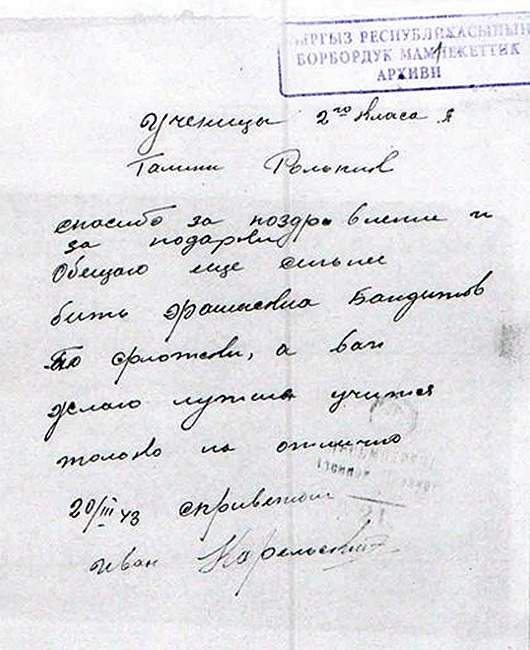 КЫРГЫЗ РЕСПУБЛИКАСЫНЫН
БОРБОРДУК МАМЛЕКЕТТИК
АРХИВИ
Ученицы 2го класа
Галини
спасибо за поздравление и
за подарки
Обещаю еще сильнее
бить фрашиских бандитов
по фрютскои, а вам
желаю лутше учится
толоко на отлично
20/III 43 сприветом
Иван Карельский